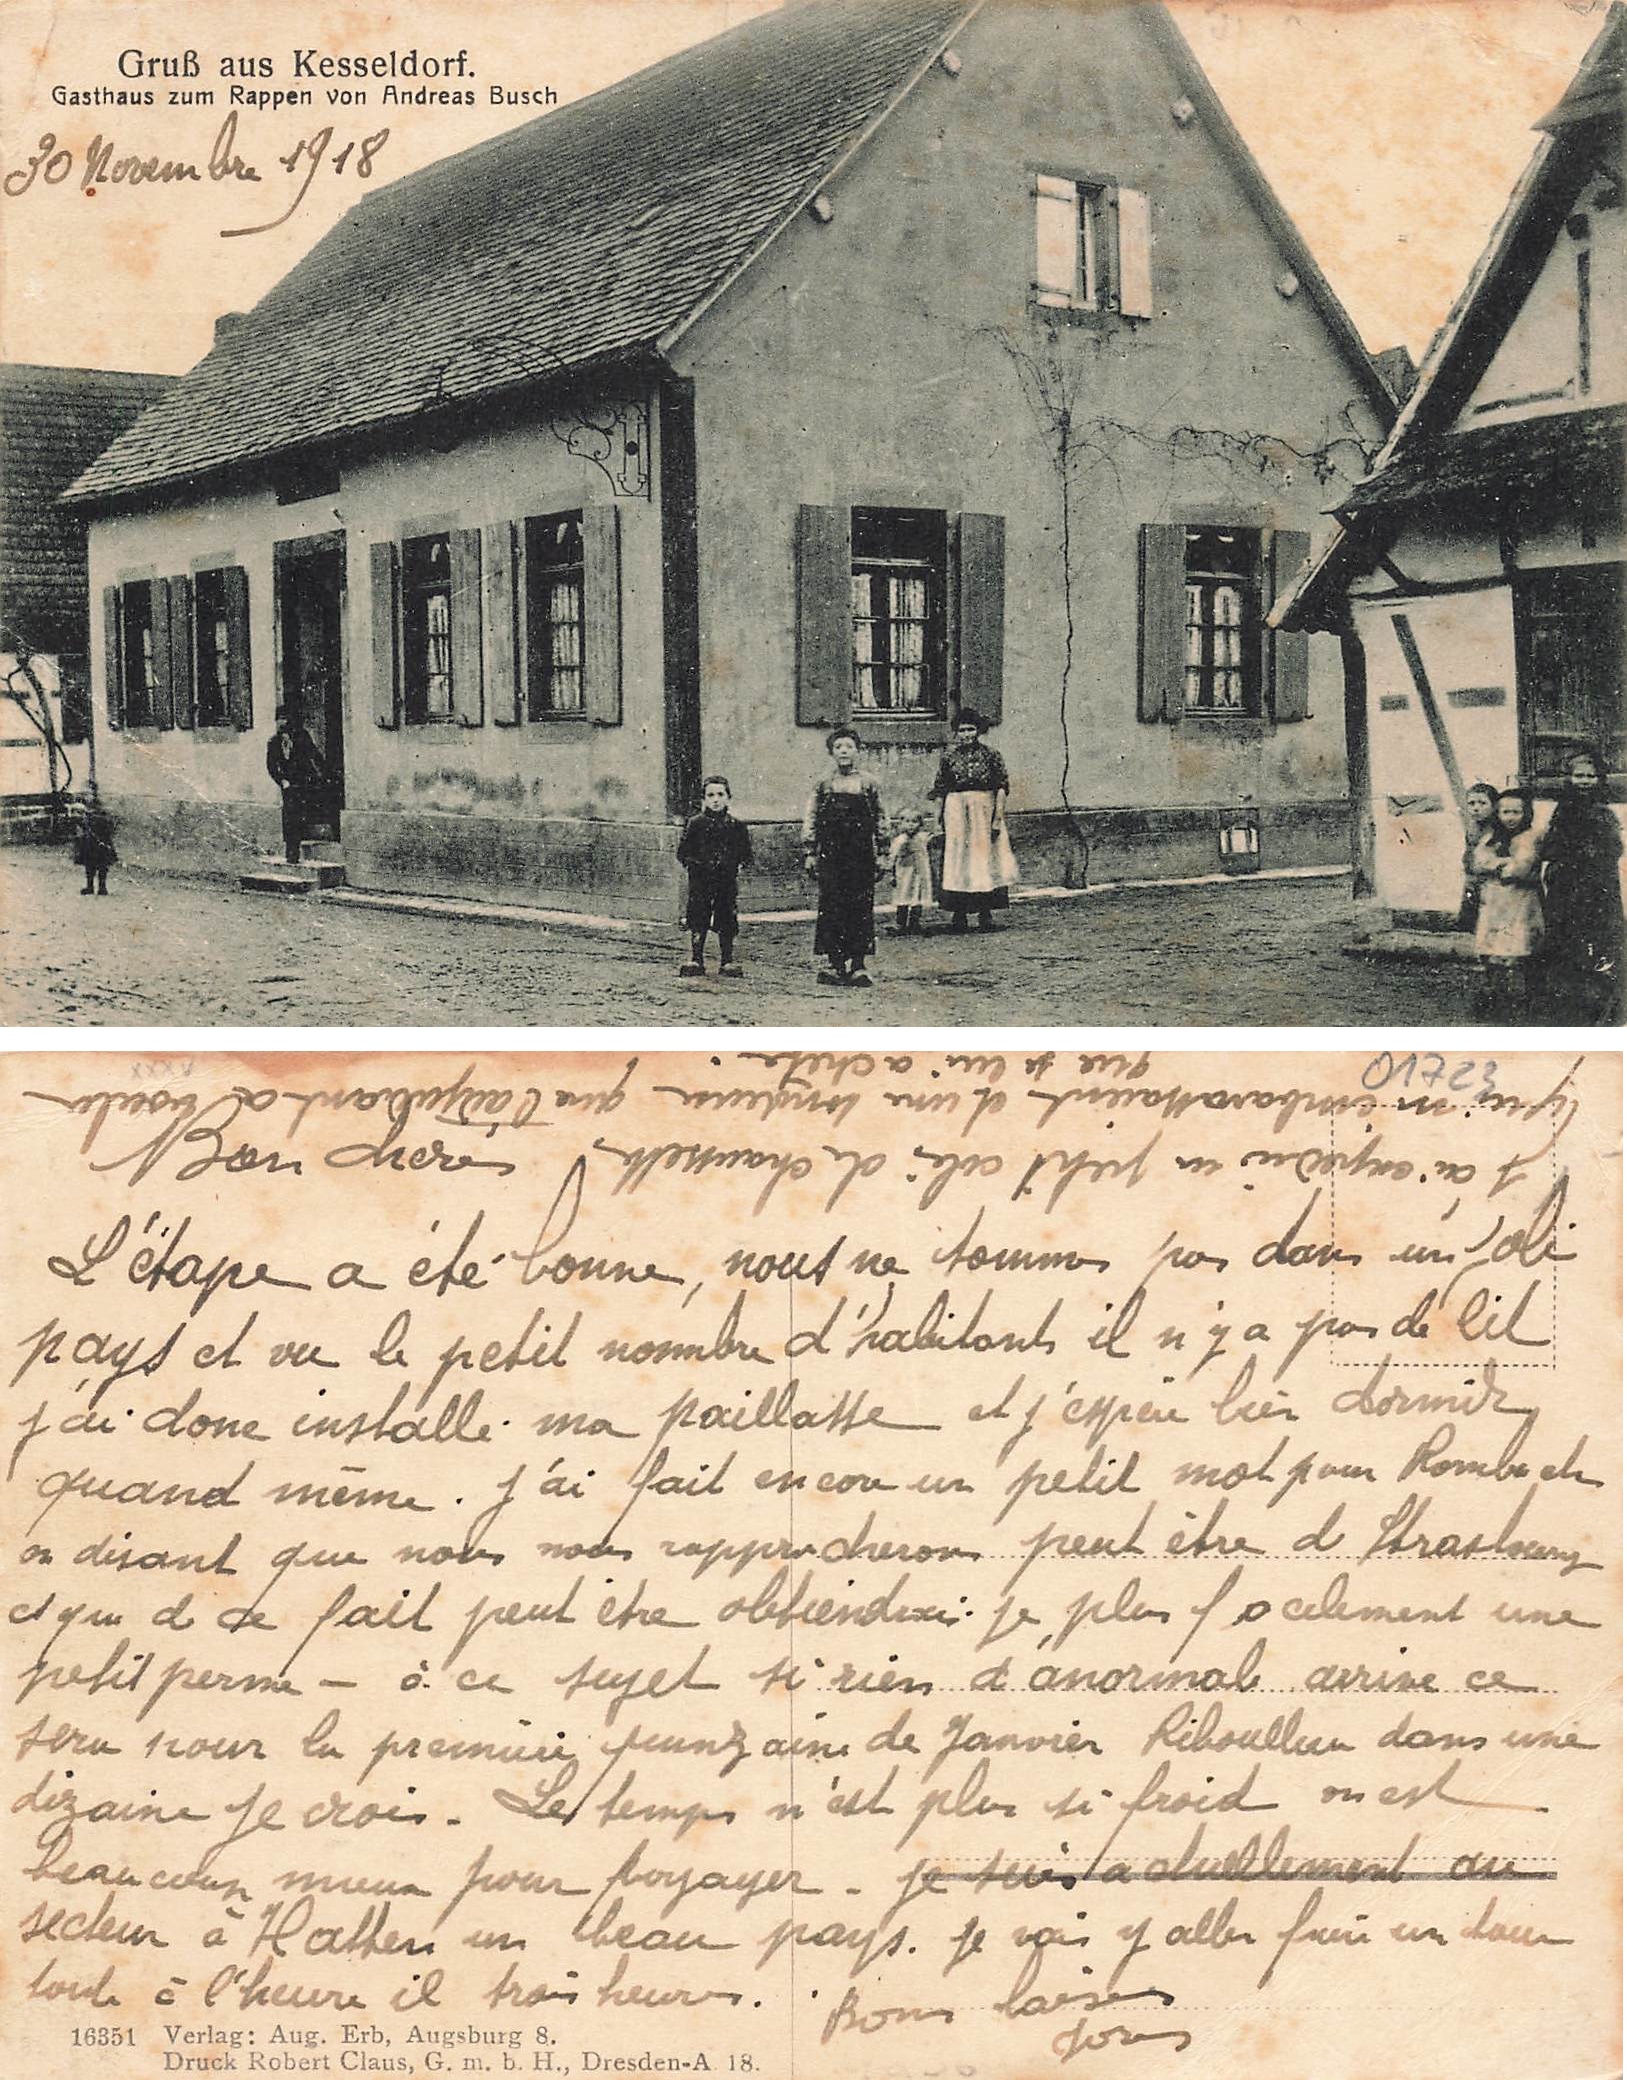 Gruß aus Kesseldorf.
Gasthaus zum Rappen von Andreas Busch
30 Novembre 1918
01723
Bien chères
L'étape a été bonne, nous ne sommes pas dans un joli
pays et vu le petit nombre d'habitants il n'y a pas de lit
j'ai donc installé ma paillasse et j'espère bien dormir
quand même. J'ai fait encore un petit mot pour Rombach
en disant que nous nous rapprocherons peut être d Strasbourg
et que de ce fait peut être obtiendrai je plus facilement une
petit perme - à ce sujet si rien d'anormal arrive ce
sera pour la première quinzaine de Janvier Riboulleau dans une
dizaine je crois. Le temps n'est plus si froid on est
beaucoup mieux pour voyager - je suis actuellement au
secteur à Hatten un beau pays. je vais y aller faire un tour
tout à l'heure il trois heures. Bons baisers
J'ai expédié un petit colis de chaussettes
qui m'embarrassaient et une longueur que l'adjudant a voulu
que je lui achète.
16351 Verlag: Aug. Erb, Augsburg 8.
Druck Robert Claus, G. m. b. H., Dresden-A 18.